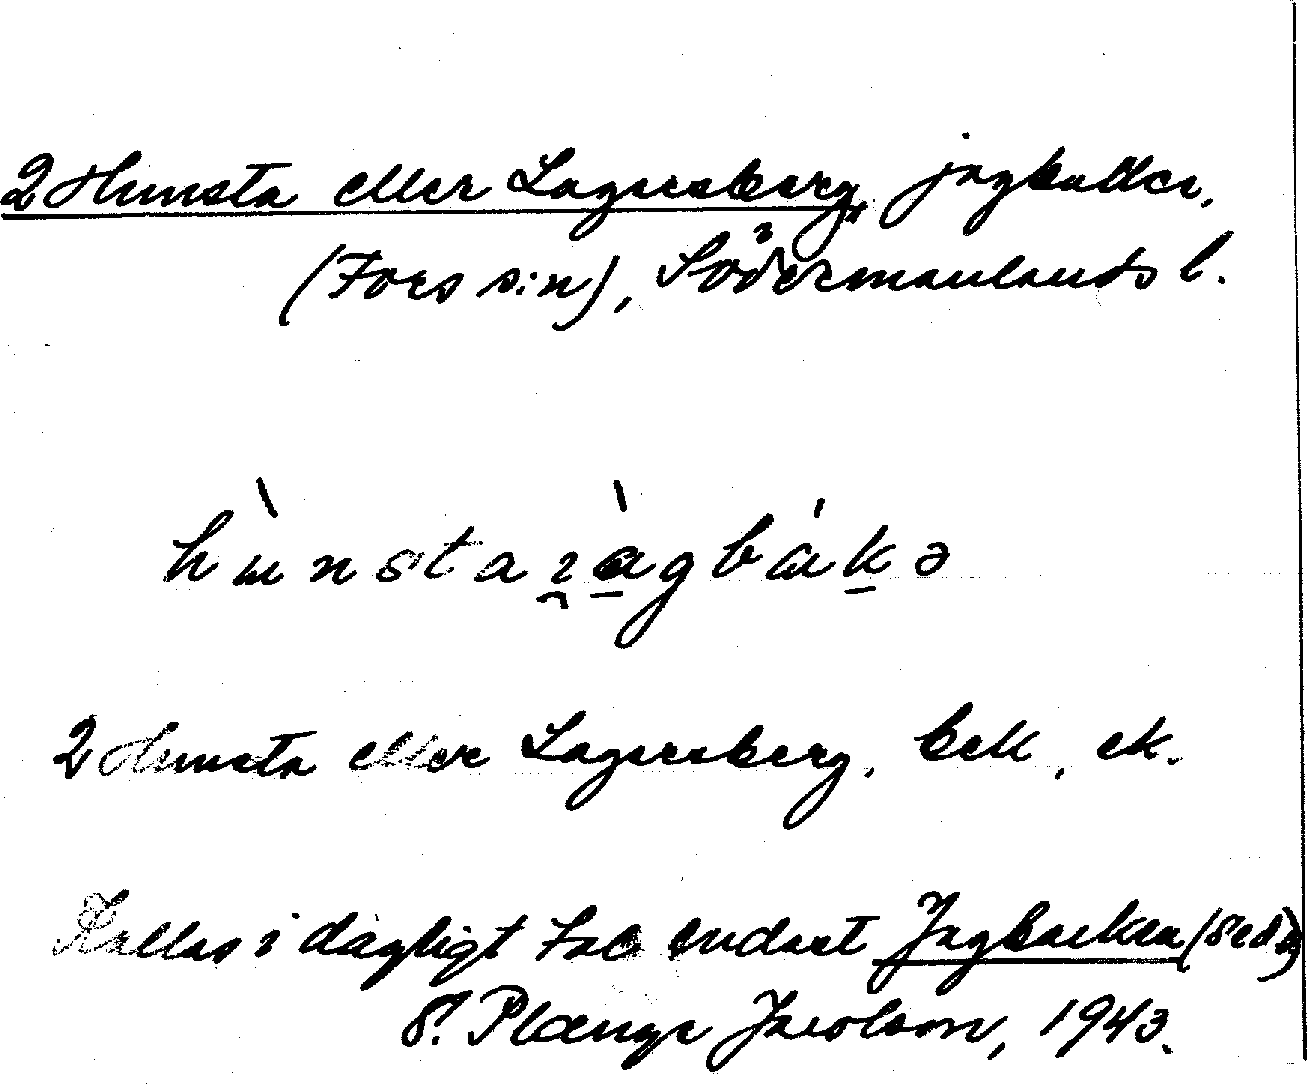 2 Hunsta eller Lagersberg, jagkulle,
(Fors sn), Södermanlands l.
hùnstaɿàgbàkə
2 Hunsta eller Lagersberg, bek, ek.
Kallas i dagligt tal endast Jagbacken (se d.o)
Plange Jacobson, 1943.